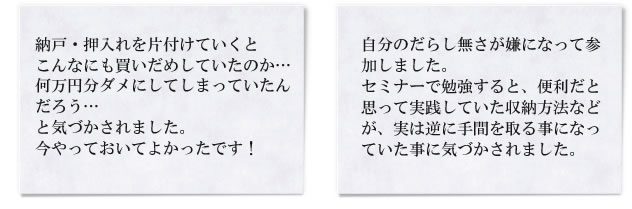 納戸・押入れを片付けていくと
こんなにも買いだめしていたのか…
何万円分ダメにしてしまっていたん
だろう…
と気づかされました。
今やっておいてよかったです！
自分のだらし無さが嫌になって参
加しました。
セミナーで勉強すると、便利だと
思って実践していた収納方法など
が、実は逆に手間を取る事になっ
ていた事に気づかされました。